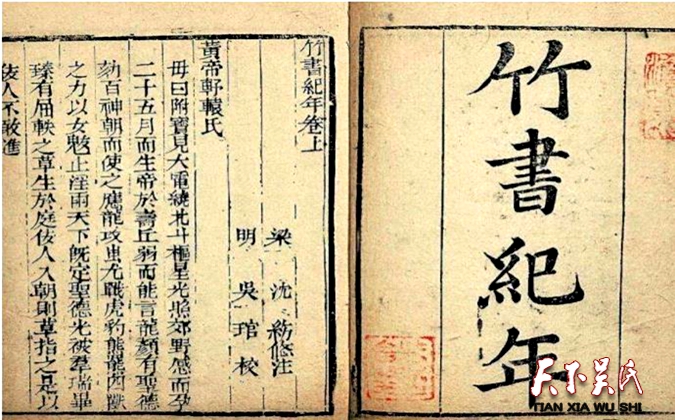 竹書紀年
竹書紀年卷上
梁 沈 約 附注
明 吳 琯 校
黃帝軒轅氏
母曰附寶見大電繞北斗樞星光照郊野感而孕
二十五月而生帝於壽丘弱而能言龍顏有聖德
劾百神朝而使之應龍攻蚩尤戰虎豹熊羆四獸
之力以女魃止淫雨天下旣定聖德光被羣瑞畢
臻有屈軼之草生於庭佞人入朝則草指之是以
佞人不敢進
天下吴氏
TIAN XIA WU SHI